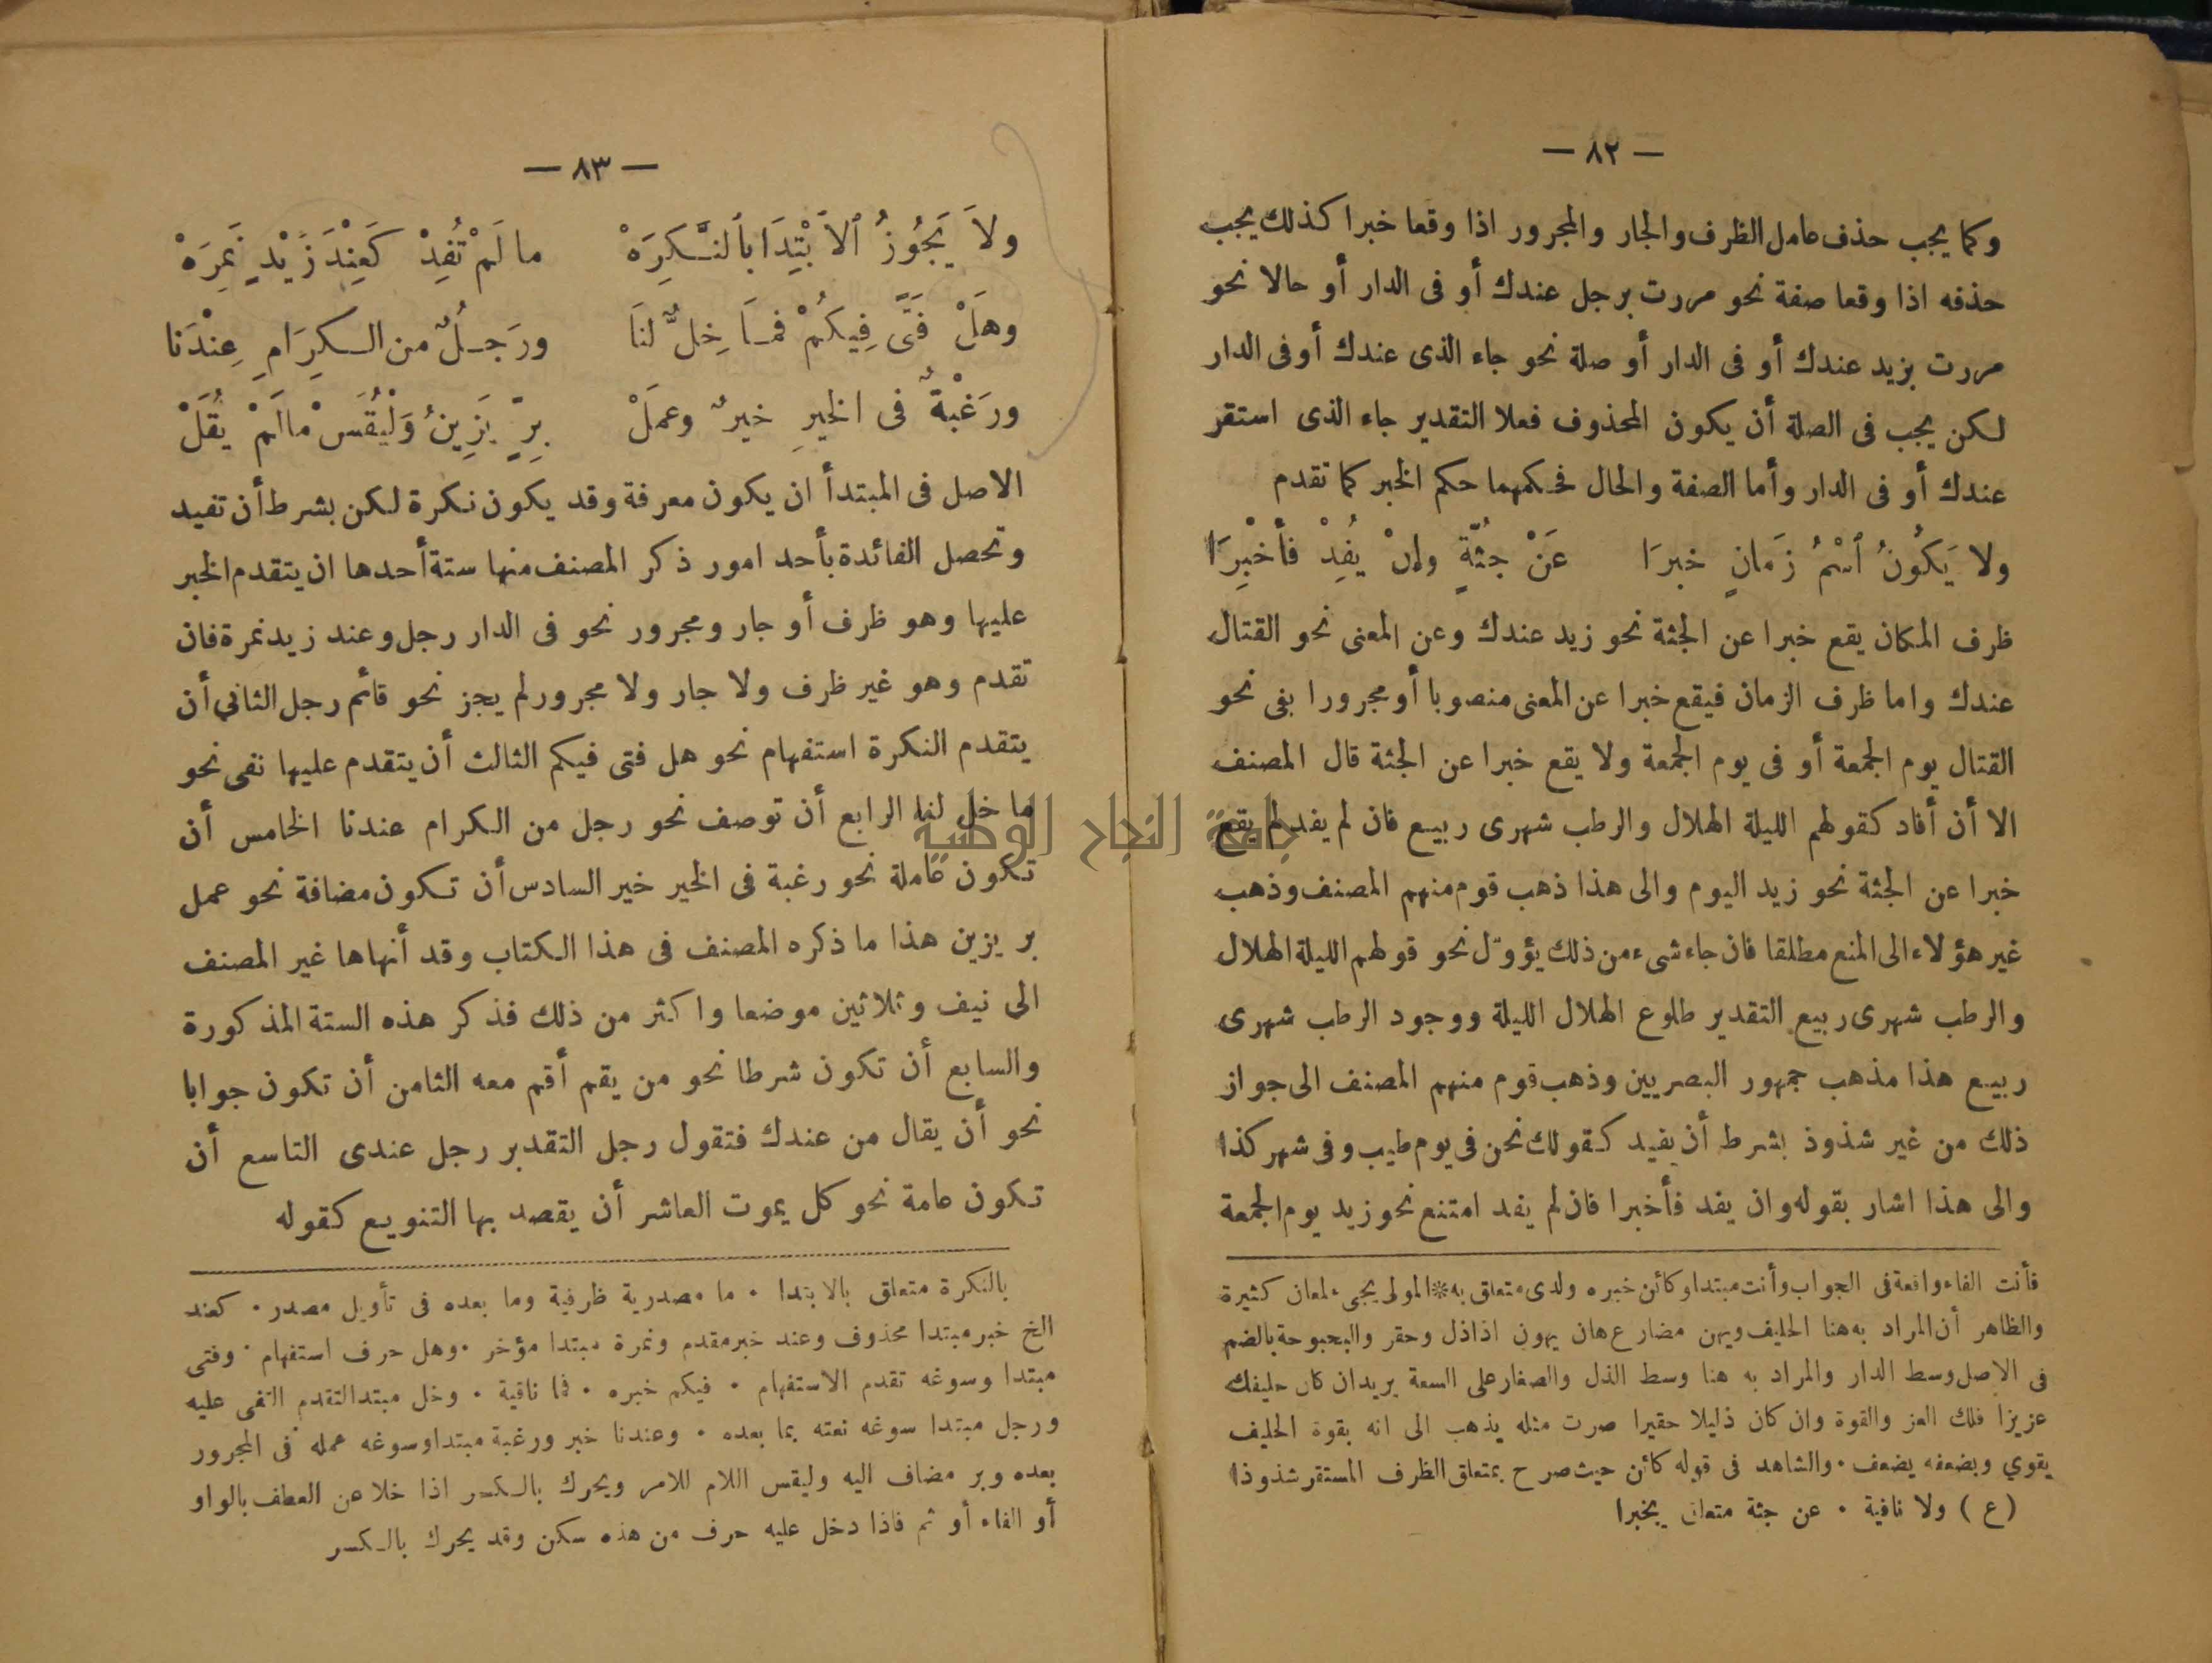 — ٨٢ —
وكما يجب حذف عامل الظرف والجار والمجرور اذا وقعا خبرا كذلك يجب
حذفه اذا وقعا صفة نحو مررت برجل عندك أو فى الدار أو حالا نحو
مررت بزيد عندك أو فى الدار أو صلة نحو جاء الذى عندك أو فى الدار
لكن يجب فى الصلة أن يكون المحذوف فعلا التقدير جاء الذى استقر
عندك أو فى الدار وأما الصفة والحال فحكمهما حكم الخبر كما تقدم
ولا يَكُونُ ٱسْمُ زَمَانٍ خبرَا عَنْ جُثَّةٍ وإنْ يُفِدْ فأَخْبِرَا
ظرف المكان يقع خبرا عن الجثة نحو زيد عندك وعن المعنى نحو القتال
عندك واما ظرف الزمان فيقع خبرا عن المعنى منصوبا أو مجرورا بفى نحو
القتال يوم الجمعة أو فى يوم الجمعة ولا يقع خبرا عن الجثة قال المصنف
الا أن أفاد كقولهم الليلة الهلال والرطب شهرى ربيع فان لم يفد لم يقع
خبرا عن الجثة نحو زيد اليوم والى هذا ذهب قوم منهم المصنف وذهب
غير هؤلاء الى المنع مطلقا فان جاء شىء من ذلك يؤوّل نحو قولهم الليلة الهلال
والرطب شهرى ربيع التقدير طلوع الهلال الليلة ووجود الرطب شهرى
ربيع هذا مذهب جمهور البصريين وذهب قوم منهم المصنف الى جواز
ذلك من غير شذوذ بشرط أن يفيد كقولك نحن فى يوم طيب وفى شهر كذا
والى هذا اشار بقوله وان يفد فأخبرا فان لم يفد امتنع نحو زيد يوم الجمعة
فأنت الفاء واقعة فى الجواب وأنت مبتدا وكائن خبره ولدى متعلق به * المولى يجىء لمعان كثيرة
والظاهر أن المراد به هنا الحليف ويهن مضارع هان يهون اذا ذل وحقر والبحبوحة بالضم
فى الاصل وسط الدار والمراد به هنا وسط الذل والصغار على السعة يريد ان كان حليفك
عزيزا فلك العز والقوة وان كان ذليلا حقيرا صرت مثله يذهب الى انه بقوة الحليف
يقوي وبضعفه يضعف . والشاهد فى قوله كائن حيث صرح بمتعلق الظرف المستقر شذوذا
( ع ) ولا نافية . عن جثة متعلق بخبرا
— ٨٣ —
ولاَ يَجُوزُ ٱلاَبْتِدَا بٱلنَّكِرَهْ ما لَمْ تُفِدْ كَعِنْدَ زَيْدٍ نَمِرَهْ
وهَلْ فَتًى فِيكُمْ فمَا خِلٌّ لنَا ورَجُلٌ من الكِرَامِ عِنْدَنا
ورَغْبَةٌ فى الخيرِ خيرٌ وعمَلْ بِرٍّ يَزِينُ وَلْيُقَسْ ما لَمْ يُقَلْ
الاصل فى المبتدأ ان يكون معرفة وقد يكون نكرة لكن بشرط أن تفيد
وتحصل الفائدة بأحد امور ذكر المصنف منها ستة أحدها ان يتقدم الخبر
عليها وهو ظرف أو جار ومجرور نحو فى الدار رجل وعند زيد نمرة فان
تقدم وهو غير ظرف ولا جار ولا مجرور لم يجز نحو قائم رجل الثاني أن
يتقدم النكرة استفهام نحو هل فتى فيكم الثالث أن يتقدم عليها نفى نحو
ما خل لنا الرابع أن توصف نحو رجل من الكرام عندنا الخامس أن
تكون عاملة نحو رغبة فى الخير خير السادس أن تكون مضافة نحو عمل
بر يزين هذا ما ذكره المصنف فى هذا الكتاب وقد أنهاها غير المصنف
الى نيف وثلاثين موضعا واكثر من ذلك فذكر هذه الستة المذكورة
والسابع أن تكون شرطا نحو من يقم أقم معه الثامن أن تكون جوابا
نحو أن يقال من عندك فتقول رجل التقدير رجل عندى التاسع أن
تكون عامة نحو كل يموت العاشر أن يقصد بها التنويع كقوله
بالنكرة متعلق بالابتدا . ما مصدرية ظرفية وما بعده فى تأويل مصدر . كعند
الخ خبر مبتدا محذوف وعند خبر مقدم ونمرة مبتدا مؤخر . وهل حرف استفهام . وفتى
مبتدا وسوغه تقدم الاستفهام . فيكم خبره . فما نافية . وخل مبتدا لتقدم النفى عليه
ورجل مبتدا سوغه نعته بما بعده . وعندنا خبر ورغبة مبتدا وسوغه عمله فى المجرور
بعده وبر مضاف اليه وليقس اللام للامر ويحرك بالكسر اذا خلا عن العطف بالواو
أو الفاء أو ثم فاذا دخل عليه حرف من هذه سكن وقد يحرك بالكسر
جامعة النجاح الوطنية